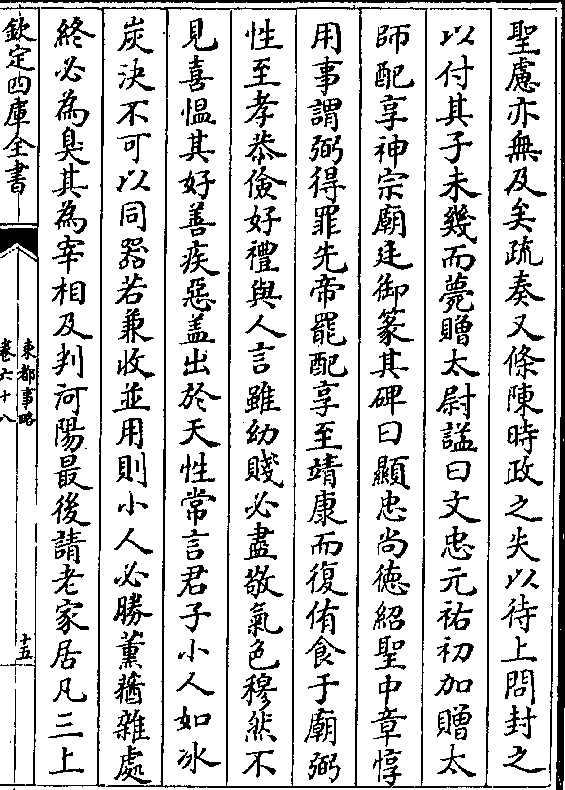 聖慮亦無及矣疏奏又條陳時政之失以待上問封之
以付其子未幾而薨贈太尉諡曰文忠元祐初加贈太
師配享神宗廟廷御篆其碑曰顯忠尚徳紹聖中章惇
用事謂弼得罪先帝罷配享至靖康而復侑食于廟弼
性至孝恭儉好禮與人言雖幼賤必盡敬氣色穆然不
見喜愠其好善疾惡盖出於天性常言君子小人如冰
炭決不可以同器若兼收並用則小人必勝薰蕕雜處
終必為臭其為宰相及判河陽最後請老家居凡三上
欽定四庫全書
東都事略
卷六十八
十五